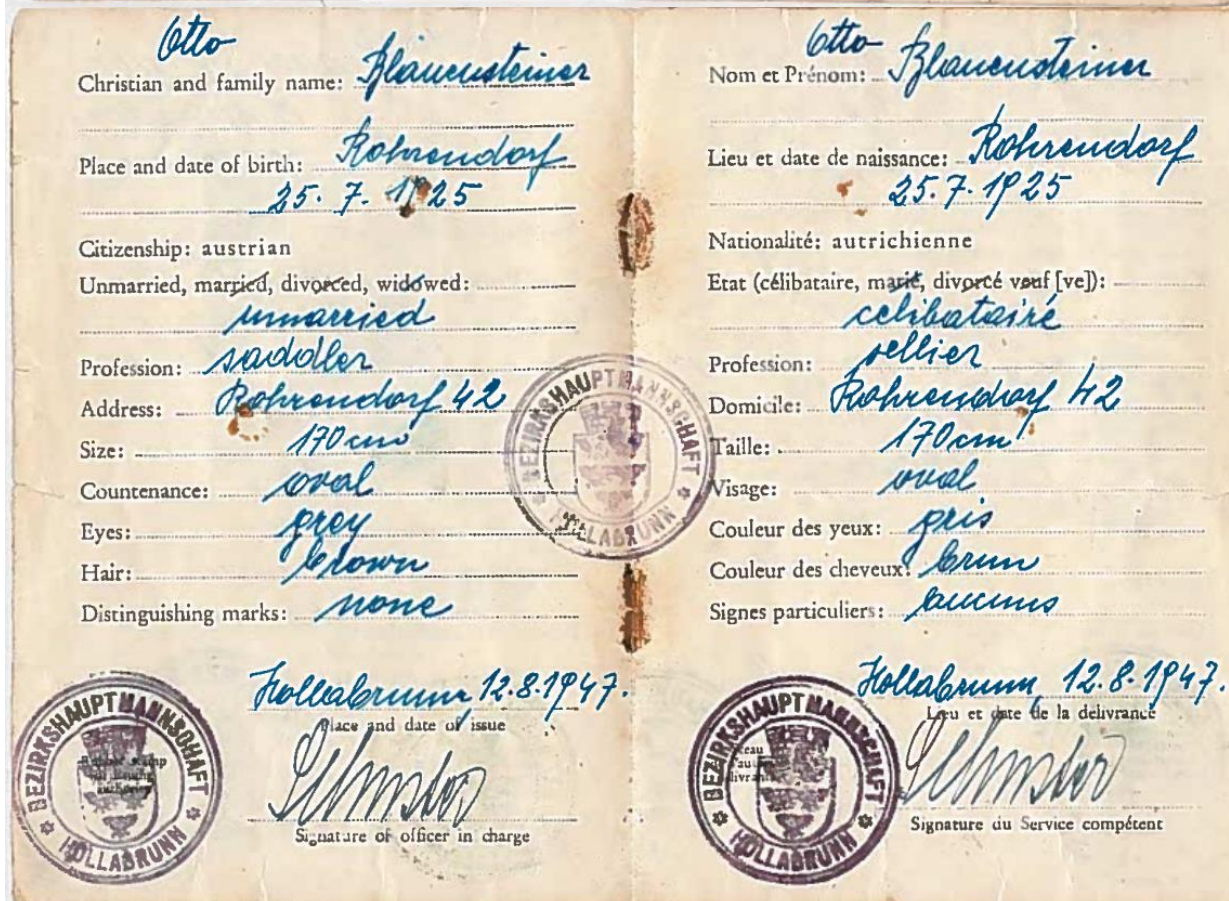 Otto
Christian and family name: Blauensteiner
Place and date of birth: Rohrendorf
25. 7. 1925
Citizenship: austrian
Unmarried, married, divorced, widowed:
unmarried
Profession: saddler
Address: Rohrendorf 42
Size: 170 cm
Countenance: oval
Eyes: grey
Hair: brown
Distinguishing marks: none
Hollabrunn, 12.8.1947.
Place and date of issue
Signature of officer in charge
BEZIRKSHAUPTMANNSCHAFT
HOLLABRUNN
BEZIRKSHAUPTMANNSCHAFT
HOLLABRUNN
Otto
Nom et Prénom: Blauensteiner
Lieu et date de naissance: Rohrendorf
25. 7. 1925
Nationalité: autrichienne
Etat (célibataire, marié, divorcé veuf [ve]):
celibatairé
Profession: sellier
Domicile: Rohrendorf 42
Taille: 170 cm
Visage: oval
Couleur des yeux: gris
Couleur des cheveux: brun
Signes particuliers: aucuns
Hollabrunn, 12.8.1947.
Lieu et date de la délivrance
Signature du Service compétent
BEZIRKSHAUPTMANNSCHAFT
HOLLABRUNN